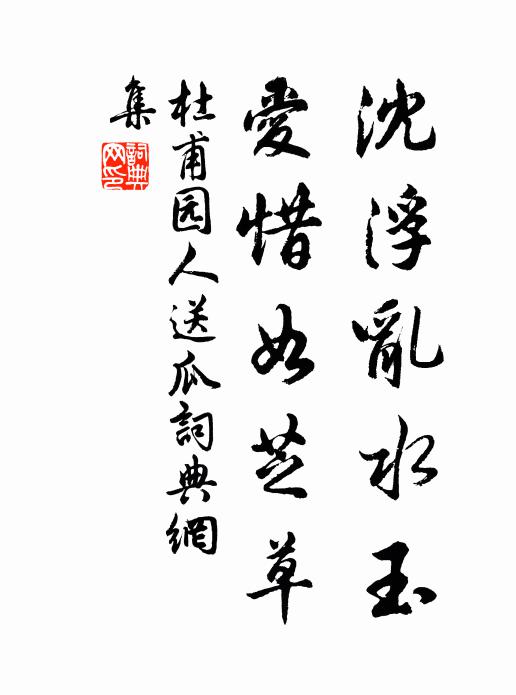 沈浮亂水玉
愛惜如芝草
杜甫园人送瓜詞典網
集
詞典网印